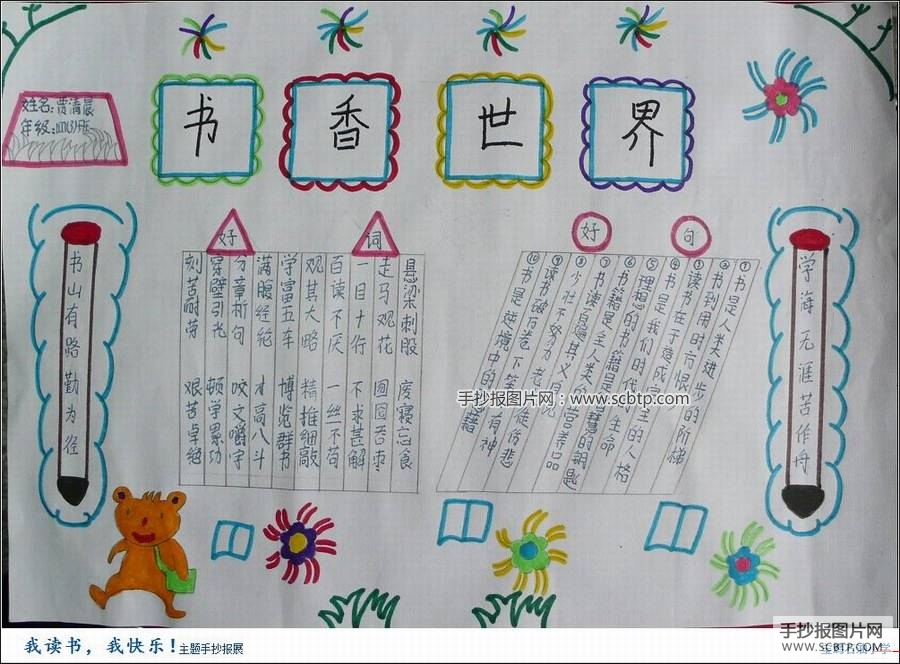 书香世界
姓名:贾清晨
书山有路勤为径
好词
悬梁刺股 废寝忘食
走马观花 囫囵吞枣
一目十行 不求甚解
百读不厌 一丝不苟
观其大略 精推细敲
学富五车 博览群书
满腹经纶 才高八斗
分章析句 咬文嚼字
穿壁引光 顿学累功
刻苦耐劳 艰苦卓绝
好句
①书是人类进步的阶梯
②书到用时方恨少
③读书在于造成完全的人格
④书是我们时代的生命
⑤理想的书籍是智慧的钥匙
⑥书籍是全人类的营养品
⑦书读百遍其义自见
⑧少壮不努力 老大徒伤悲
⑨读书破万卷 下笔如有神
⑩书是逆境中的慰籍
学海无涯苦作舟
手抄报图片网:www.scbtp.com
我读书，我快乐!主题手抄报展
手抄报图片网
WWW.SCBTP.COM